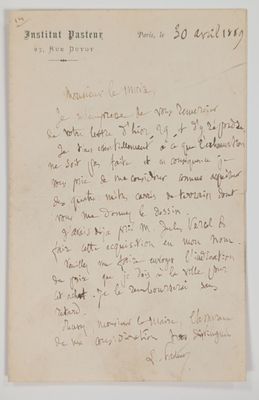 Institut Pasteur
93, Rue Dutot
Paris, le 30 avril 1889
Monsieur le Maire,
Je m'empresse de vous remercier
de votre lettre d'hier, 29, et d'y répondre.
Je tiens essentiellement à ce que l'exhumation
ne soit pas faite et en conséquence je
vous prie de me considérer comme acquéreur
des quatre mètres carrés de terrain dont
vous me donnez le dessin.
J'avais déjà prié M. Jules Vercel de
faire cette acquisition en mon nom.
Veuillez me faire envoyer l'indication
du prix que je dois à la ville pour
cet achat. Je le rembourserai sans
retard.
Monsieur le Maire, l'assurance
de ma considération très distinguée
L. Pasteur